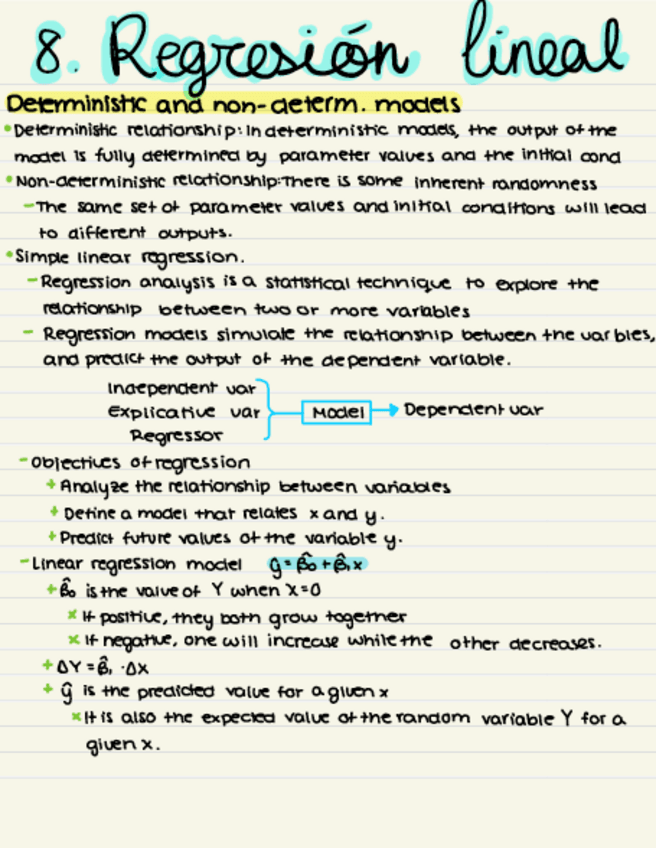 8. Regresión lineal
Deterministic and non-determ. models
• Deterministic relationship: In deterministic models, the output of the
model is fully determined by parameter values and the initial cond
• Non-deterministic relationship: There is some inherent randomness
- The same set of parameter values and initial conditions will lead
to different outputs.
• Simple linear regression.
- Regression analysis is a statistical technique to explore the
relationship between two or more variables
- Regression models simulate the relationship between the varbles,
and predict the output of the dependent variable.
Independent var
Explicative var
Regressor
Model
Dependent var
- Objectives of regression
+ Analyze the relationship between variables
+ Define a model that relates x and y.
+ Predict future values of the variable y.
- Linear regression model ŷ = β̂₀ + β̂₁x
+ β̂₀ is the value of Y when x=0
x If positive, they both grow together
x If negative, one will increase while the other decreases.
+ ΔY = β̂₁ · ΔX
+ ŷ is the predicted value for a given x
x It is also the expected value of the random variable Y for a
given x.